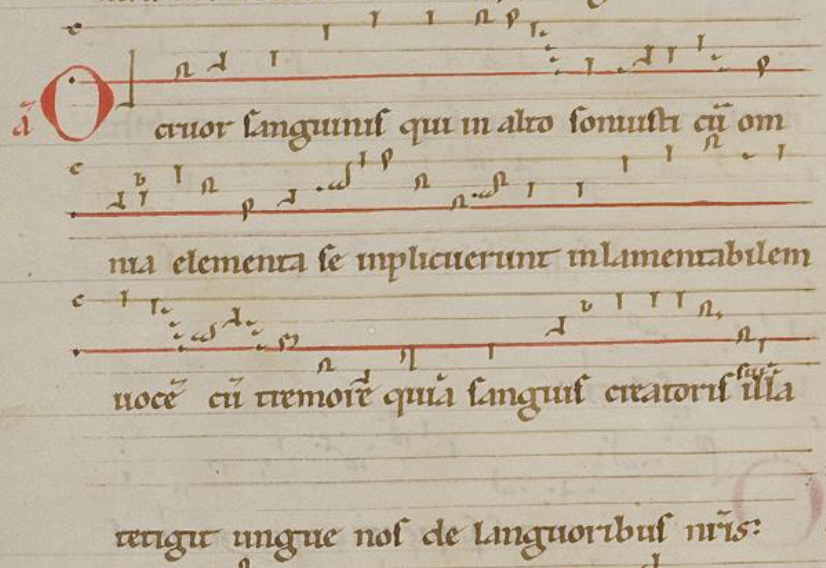 ā O cruor sanguinis qui in alto sonuisti cū om
nia elementa se inplicuerunt in lamentabilem
uocē cū tremorē quia sanguis creatoris illa
tetigit ungue nos de languoribus nr̄is: